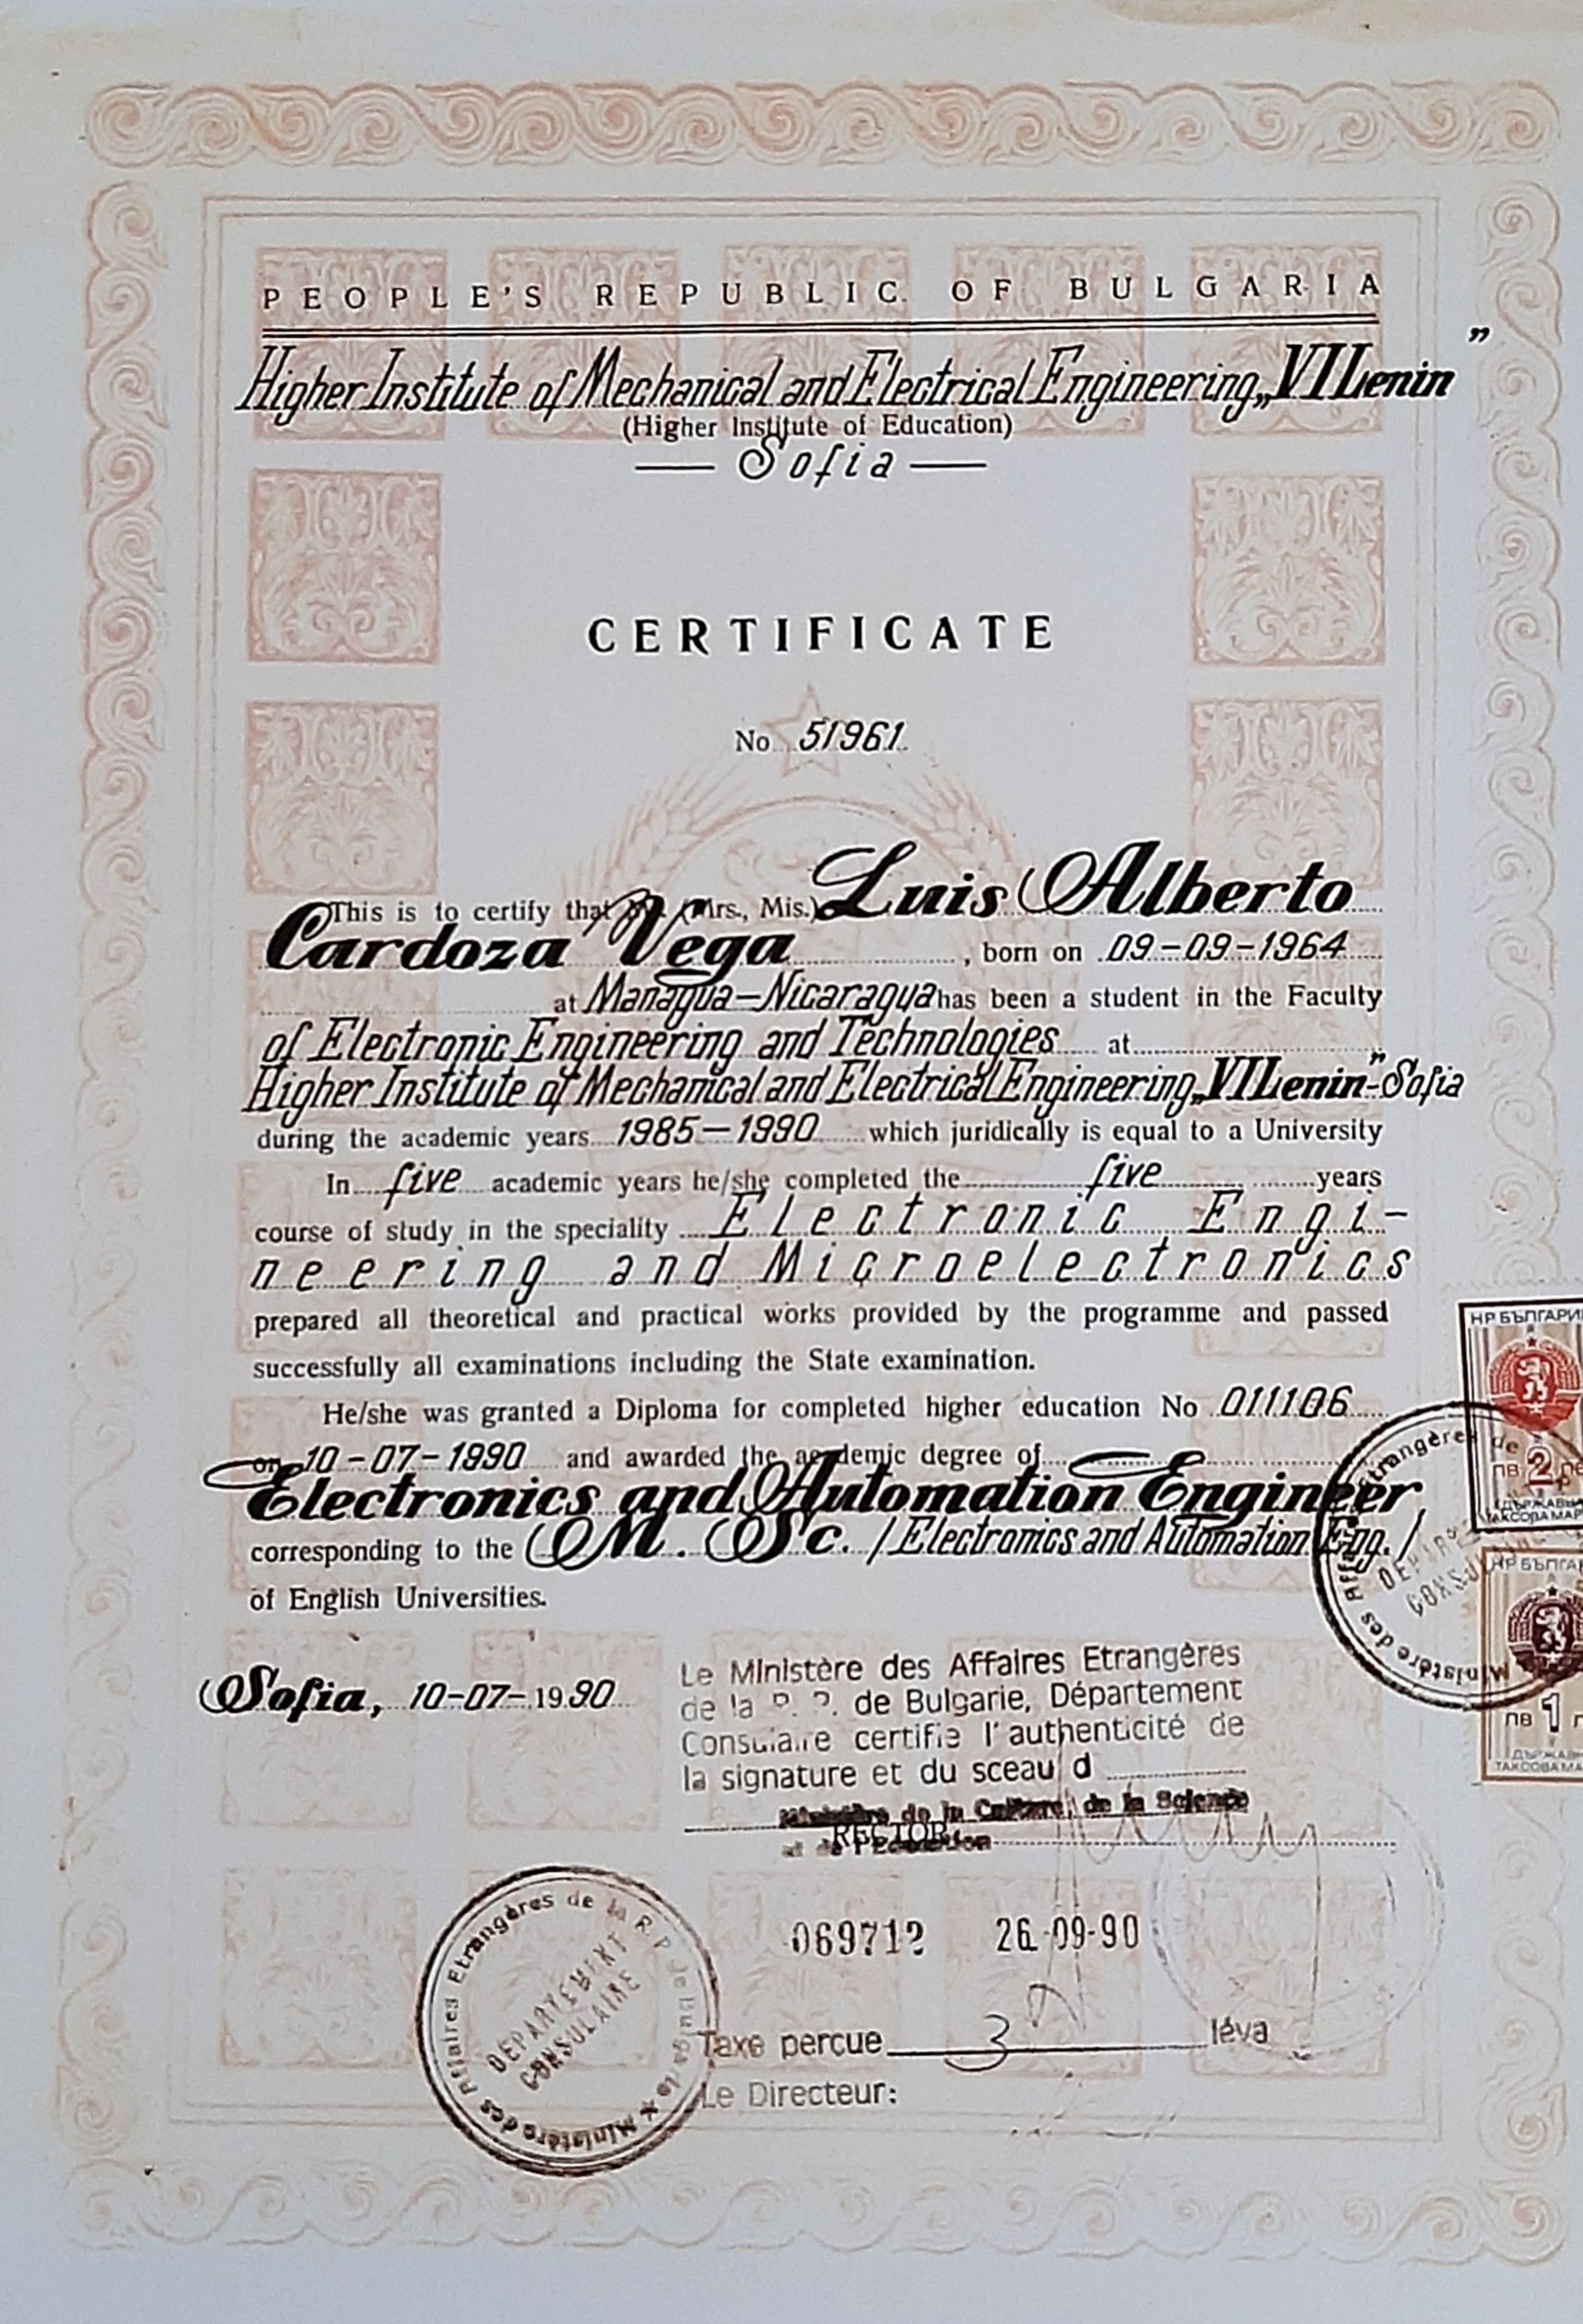 PEOPLE'S REPUBLIC OF BULGARIA
Higher Institute of Mechanical and Electrical Engineering „VI Lenin”
(Higher Institute of Education)
— Sofia —
CERTIFICATE
No 51961
This is to certify that (Mrs., Mis.) Luis Alberto
Cardoza Vega, born on 09-09-1964
at Managua-Nicaragua has been a student in the Faculty
of Electronic Engineering and Technologies at
Higher Institute of Mechanical and Electrical Engineering „VI Lenin”-Sofia
during the academic years 1985-1990 which juridically is equal to a University
In five academic years he/she completed the five years
course of study in the speciality Electronic Engi-
neering and Microelectronics
prepared all theoretical and practical works provided by the programme and passed
successfully all examinations including the State examination.
He/she was granted a Diploma for completed higher education No 011106
on 10-07-1990 and awarded the academic degree of
Electronics and Automation Engineer
corresponding to the M. Sc. /Electronics and Automation Eng./
of English Universities.
Sofia, 10-07-1990
Le Ministère des Affaires Etrangères
de la de Bulgarie, Département
Consulaire certifie l'authenticité de
la signature et du sceau d
Ministère de la Culture, de la Science
RECTOR
et de l'Education
26-09-90
Taxe perçue 3 léva
Le Directeur:
Ministère des Affaires Etrangères de la R. P. de Bulgarie
DEPARTEMENT
CONSULAIRE
НР БЪЛГАРИ
2
1